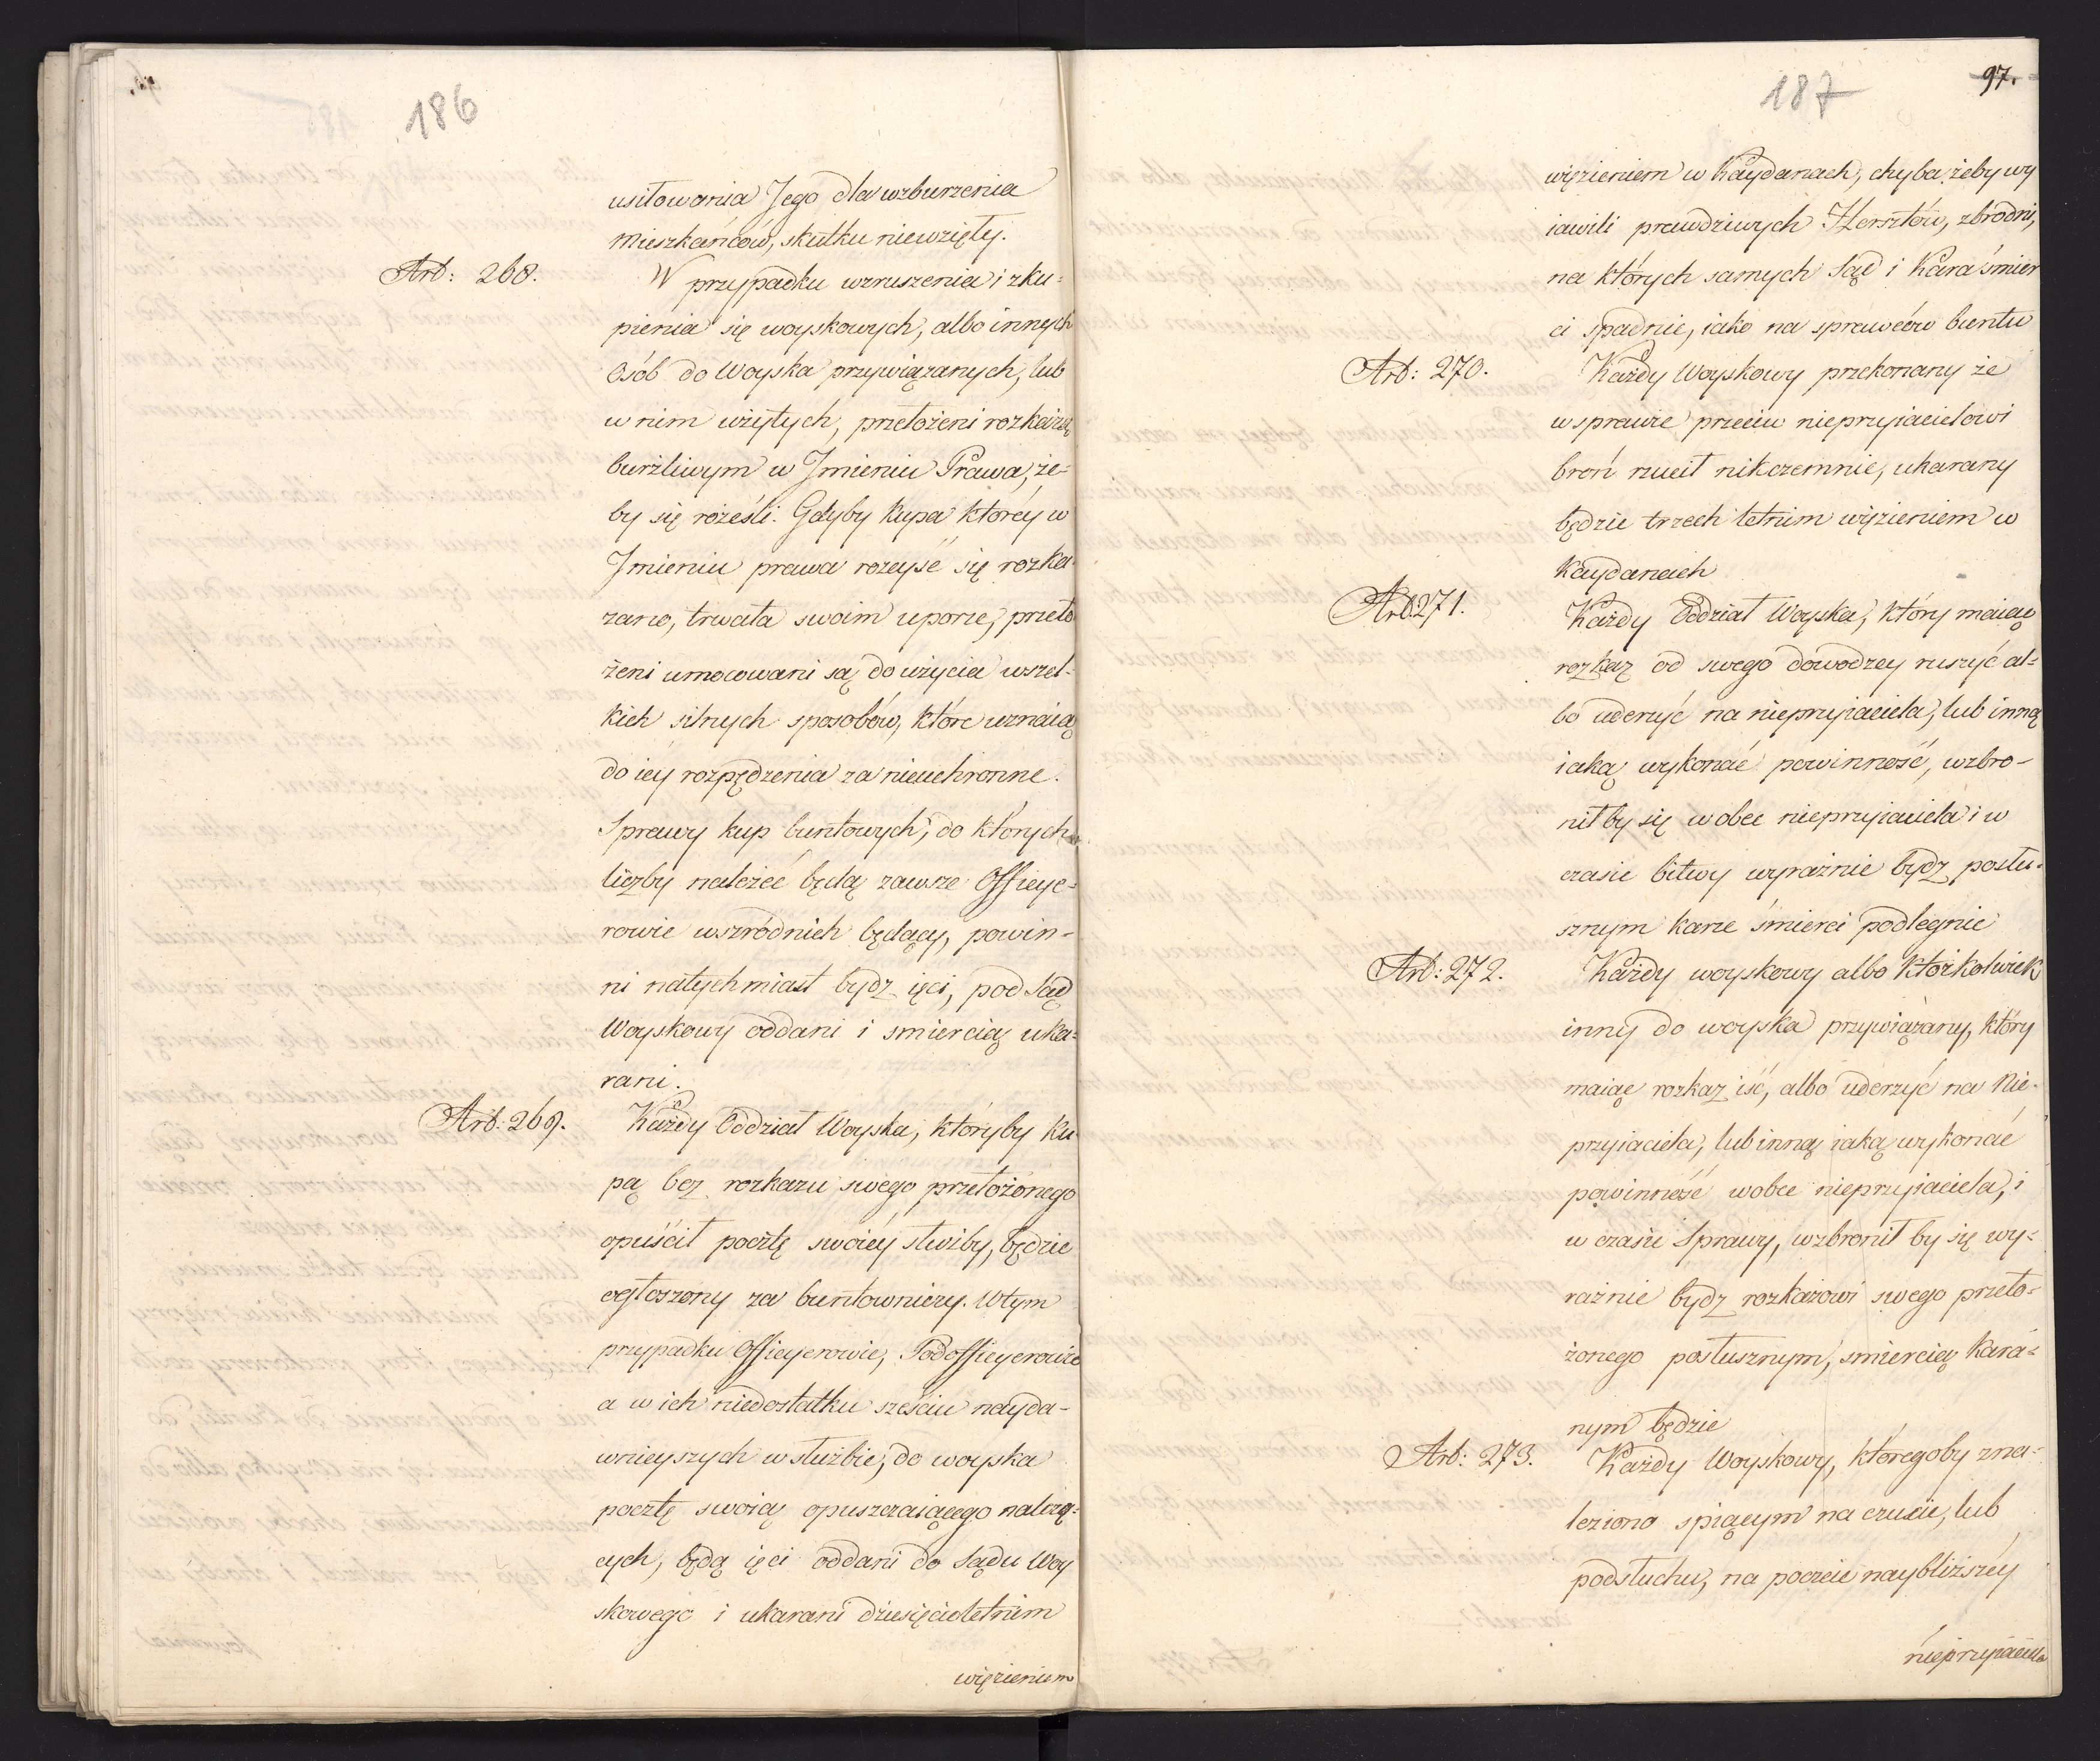 186
usiłowania Jego dla wzburzenia
mieszkańców, skutku niewzięły.
Art: 268.
W przypadku wzruszenia i zku=
pienia się woyskowych, albo innych
Osób do Woyska przywiązanych, lub
w nim użytych, przełożeni rozkażą
burżliwym w Jmieniu Prawa, że=
by się rożeśli. Gdyby kupa którey w
Jmieniu prawa rozeyść się rozka=
zano, trwała swoim uporze, przeło
żeni umocowani są do użycia wszel=
kich silnych sposobów, które uznaią
do iey rozpędzenia za nieuchronne.
Sprawy kup buntowych, do których
liczby należeć będą zawsze Officye=
rowie wszródnich będący, powin=
ni natychmiast bydz ięci, pod Sąd
Woyskowy oddani i smiercią uka=
rani.
Art: 269.
Każdy Oddział Woyska, któryby ku
pą bez rozkazu swego przełożonego
opuścił pocztę swoiey służby, będzie
ogłoszony za buntowniczy. W tym
przypadku Officyerowie, Podofficyerowie
a w ich niedostatku sześciu nayda=
wnieyszych w służbie, do woyska
pocztę swoią opuszczaiącego należą=
cych, będą ięci oddani do Sądu Woy
skowego i ukarani dziesięcioletnim
więzieniem
97.
187
więzieniem w Kaydanach, chyba żeby wy
iawili prawdziwych Hersztów, zbrodni,
na których samych Sąd i Kara śmier
ci spadnie, iako na sprawców buntu
Art: 270.
Każdy Woyskowy przekonany że
w sprawie przeciw nieprzyiacielowi
broń rzucił nikczemnie, ukarany
będzie trzech letnim więzieniem w
Kaydanach
Art: 271.
Każdy Oddział Woyska, który maiąc
rozkaz od swego dowodzcy ruszyć al=
bo uderzyć na nieprzyiaciela, lub inną
iaką wykonać powinność, wzbro=
nił by się wobec nieprzyiaciela i w
czasie bitwy wyraźnie bydz posłu=
sznym karze śmierci podlegnie
Art: 272.
Każdy woyskowy albo któżkolwiek
inny do woyska przywiązany, który
maiąc rozkaz iść, albo uderzyć na Nie=
przyiaciela, lub inną iaką wykonać
powinność wobec nieprzyiaciela, i
w czasie Sprawy, wzbronił by się wy=
raźnie bydz rozkazowi swego przeło=
żonego posłusznym, smiercią kara=
nym będzie
Art: 273.
Każdy Woyskowy, któregoby zna=
leziono spiącym na czucie, lub
podsłuchu, na poczcie naybliższey
nieprzyiaciela